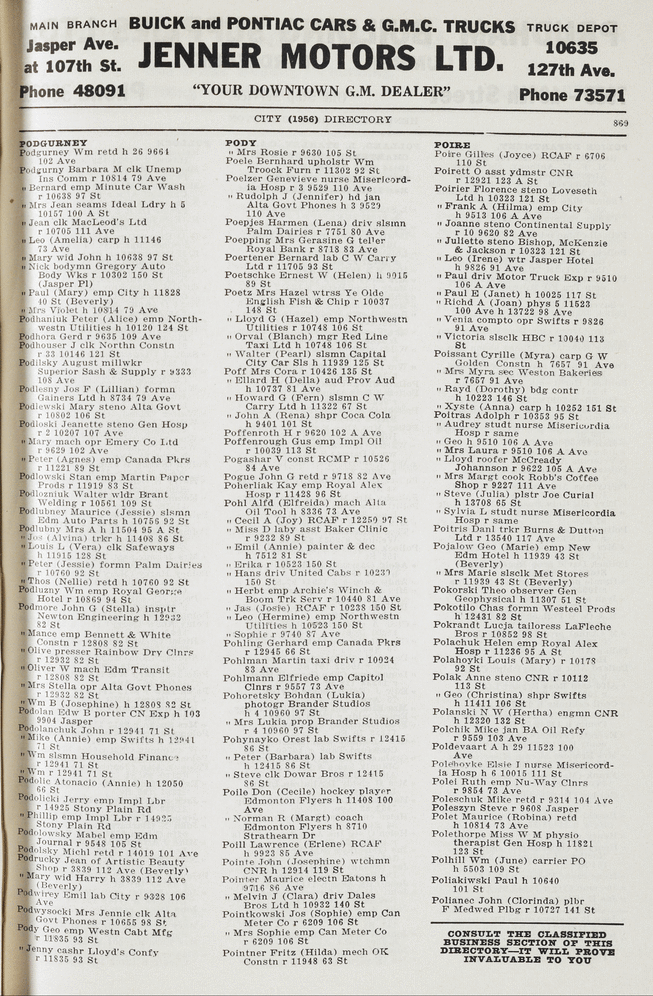 MAIN BRANCH BUICK and PONTIAC CARS & G.M.C. TRUCKS TRUCK DEPOT
Jasper Ave.
at 107th St.
Phone 48091
JENNER MOTORS LTD.
"YOUR DOWNTOWN G.M. DEALER"
10635
127th Ave.
Phone 73571
CITY (1956) DIRECTORY 869
PODGURNEY
Podgurney Wm retd h 26 9661
102 Ave
Podgurny Barbara M clk Unemp
Ins Comm r 10814 79 Ave
" Bernard emp Minute Car Wash
r 10638 97 St
" Mrs Jean seams Ideal Ldry h 5
10157 100 A St
" Jean clk MacLeod's Ltd
r 10705 111 Ave
" Leo (Amelia) carp h 11146
73 Ave
" Mary wid John h 10638 97 St
" Nick bodymn Gregory Auto
Body Wks r 10302 150 St
(Jasper Pl)
" Paul (Mary) emp City h 11828
40 St (Beverly)
" Mrs Violet h 10814 79 Ave
Podhaniuk Peter (Alice) emp North-
westn Utilities h 10120 124 St
Podhora Gerd r 9635 109 Ave
Podhouser J clk Northn Constn
r 33 10146 121 St
Podilsky August millwkr
Superior Sash & Supply r 9333
108 Ave
Podlesny Jos F (Lillian) formn
Gainers Ltd h 8734 79 Ave
Podlewski Mary steno Alta Govt
r 10802 106 St
Podloski Jeanette steno Gen Hosp
r 2 10207 107 Ave
" Mary mach opr Emery Co Ltd
r 9629 102 Ave
" Peter (Agnes) emp Canada Pkrs
r 11221 89 St
Podlowski Stan emp Martin Paper
Prods r 11919 83 St
Podlozniuk Walter wldr Brant
Welding r 10561 109 St
Podlubney Maurice (Jessie) slsmn
Edm Auto Parts h 10756 92 St
Podlubny Mrs A h 11504 95 A St
" Jos (Alvina) trkr h 11408 86 St
" Louis L (Vera) clk Safeways
h 11915 128 St
" Peter (Jessie) formn Palm Dairies
r 10760 92 St
" Thos (Nellie) retd h 10760 92 St
Podluzny Wm emp Royal George
Hotel r 10869 94 St
Podmore John G (Stella) insptr
Newton Engineering h 12932
82 St
" Mance emp Bennett & White
Constn r 12808 82 St
" Olive presser Rainbow Dry Clnrs
r 12932 82 St
" Oliver W mach Edm Transit
r 12808 82 St
" Mrs Stella opr Alta Govt Phones
r 12932 82 St
" Wm B (Josephine) h 12808 82 St
Podolan Edw B porter CN Exp h 103
9904 Jasper
Podolanchuk John r 12941 71 St
" Mike (Annie) emp Swifts h 12941
71 St
" Wm slsmn Household Finance
r 12941 71 St
" Wm r 12941 71 St
Podolic Atonacio (Annie) h 12050
66 St
Podolicki Jerry emp Impl Lbr
r 14925 Stony Plain Rd
" Phillip emp Impl Lbr r 14925
Stony Plain Rd
Podolowsky Mabel emp Edm
Journal r 9548 105 St
Podolsky Michl retd r 14019 101 Ave
Podrucky Jean of Artistic Beauty
Shop r 3839 112 Ave (Beverly)
" Mary wid Harry h 3839 112 Ave
(Beverly)
Podwirey Emil lab City r 9328 106
Ave
Podwysocki Mrs Jennie clk Alta
Govt Phones r 10655 98 St
Pody Geo emp Westn Cabt Mfg
r 11835 93 St
" Jenny cashr Lloyd's Confy
r 11835 93 St
PODY
" Mrs Rosie r 9630 105 St
Poele Bernhard upholstr Wm
Troock Furn r 11302 92 St
Poelzer Genevieve nurse Misericord-
ia Hosp r 3 9529 110 Ave
" Rudolph J (Jennifer) hd jan
Alta Govt Phones h 3 9529
110 Ave
Poepjes Harmen (Lena) driv slsmn
Palm Dairies r 7751 80 Ave
Poepping Mrs Gerasine G teller
Royal Bank r 8718 83 Ave
Poertener Bernard lab C W Carry
Ltd r 11705 93 St
Poetschke Ernest W (Helen) h 9915
89 St
Poetz Mrs Hazel wtrss Ye Olde
English Fish & Chip r 10037
148 St
" Lloyd G (Hazel) emp Northwestn
Utilities r 10748 106 St
" Orval (Blanch) mgr Red Line
Taxi Ltd h 10748 106 St
" Walter (Pearl) slsmn Capital
City Car Sls h 11939 125 St
Poff Mrs Cora r 10426 135 St
" Ellard H (Della) aud Prov Aud
h 10737 81 Ave
" Howard G (Fern) slsmn C W
Carry Ltd h 11322 67 St
" John A (Rena) shpr Coca Cola
h 9401 101 St
Poffenroth H r 9620 102 A Ave
Poffenrough Gus emp Impl Oil
r 10039 113 St
Pogashar V const RCMP r 10526
84 Ave
Pogue John G retd r 9718 82 Ave
Poherliak Kay emp Royal Alex
Hosp r 11428 96 St
Pohl Alfd (Elfreida) mach Alta
Oil Tool h 8336 73 Ave
" Cecil A (Joy) RCAF r 12259 97 St
" Miss D laby asst Baker Clinic
r 9232 89 St
" Emil (Annie) painter & dec
h 7512 81 St
" Erika r 10523 150 St
" Hans driv United Cabs r 10239
150 St
" Herbt emp Archie's Winch &
Boom Trk Serv r 10440 81 Ave
" Jas (Josie) RCAF r 10238 150 St
" Leo (Hermine) emp Northwestn
Utilities h 10523 150 St
" Sophie r 9740 87 Ave
Pohling Gerhard emp Canada Pkrs
r 12945 66 St
Pohlman Martin taxi driv r 10924
83 Ave
Pohlmann Elfriede emp Capitol
Clnrs r 9557 73 Ave
Pohoretsky Bohdan (Lukia)
photogr Brander Studios
h 4 10960 97 St
" Mrs Lukia prop Brander Studios
r 4 10960 97 St
Pohynayko Orest lab Swifts r 12415
86 St
" Peter (Barbara) lab Swifts
h 12415 86 St
" Steve clk Dowar Bros r 12415
86 St
Poile Don (Cecile) hockey player
Edmonton Flyers h 11408 100
Ave
" Norman R (Margt) coach
Edmonton Flyers h 8710
Strathearn Dr
Poill Lawrence (Erlene) RCAF
h 9923 85 Ave
Pointe John (Josephine) wtchmn
CNR h 12914 119 St
Pointer Maurice electn Eatons h
9716 86 Ave
" Melvin J (Clara) driv Dales
Bros Ltd h 10932 140 St
Pointkowski Jos (Sophie) emp Can
Meter Co r 6209 106 St
" Mrs Sophie emp Can Meter Co
r 6209 106 St
Pointner Fritz (Hilda) mech OK
Constn r 11948 63 St
POIRE
Poire Gilles (Joyce) RCAF r 6706
110 St
Poirett O asst ydmstr CNR
r 12921 123 A St
Poirier Florence steno Loveseth
Ltd h 10323 121 St
" Frank A (Hilma) emp City
h 9513 106 A Ave
" Joanne steno Continental Supply
r 10 9620 82 Ave
" Juliette steno Bishop, McKenzie
& Jackson r 10323 121 St
" Leo (Irene) wtr Jasper Hotel
h 9826 91 Ave
" Paul driv Motor Truck Exp r 9510
106 A Ave
" Paul E (Janet) h 10025 117 St
" Richd A (Joan) phys 5 11523
100 Ave h 13722 98 Ave
" Venia compto opr Swifts r 9826
91 Ave
" Victoria slsclk HBC r 10040 113
St
Poissant Cyrille (Myra) carp G W
Golden Constn h 7657 91 Ave
" Mrs Myra sec Weston Bakeries
r 7657 91 Ave
" Rayd (Dorothy) bdg contr
h 10223 146 St
" Xyste (Anna) carp h 10252 151 St
Poitras Adolph r 10353 95 St
" Audrey studt nurse Misericordia
Hosp r same
" Geo h 9510 106 A Ave
" Mrs Laura r 9510 106 A Ave
" Lloyd roofer McCready
Johannson r 9622 105 A Ave
" Mrs Margt cook Robb's Coffee
Shop r 9227 111 Ave
" Steve (Julia) plstr Joe Curial
h 13708 65 St
" Sylvia L studt nurse Misericordia
Hosp r same
Poitris Danl trkr Burns & Dutton
Ltd r 13540 117 Ave
Pojalow Geo (Marie) emp New
Edm Hotel h 11939 43 St
(Beverly)
" Mrs Marie slsclk Met Stores
r 11939 43 St (Beverly)
Pokorski Theo observer Gen
Geophysical h 11307 51 St
Pokotilo Chas formn Westeel Prods
h 12431 82 St
Pokrandt Lucja tailoress LaFleche
Bros r 10852 98 St
Polachuk Helen emp Royal Alex
Hosp r 11236 95 A St
Polahoyki Louis (Mary) r 10178
92 St
Polak Anne steno CNR r 10112
113 St
" Geo (Christina) shpr Swifts
h 11411 106 St
Polanski N W (Hertha) engmn CNR
h 12320 132 St
Polchik Mike jan BA Oil Refy
r 9559 103 Ave
Poldevaart A h 29 11523 100
Ave
Polehoyke Elsie I nurse Misericord-
ia Hosp h 6 10015 111 St
Polei Ruth emp Nu-Way Clnrs
r 9854 73 Ave
Poleschuk Mike retd r 9314 104 Ave
Poleszyn Steve r 9608 Jasper
Polet Maurice (Robina) retd
h 10814 73 Ave
Polethorpe Miss W M physio
therapist Gen Hosp h 11821
123 St
Polhill Wm (June) carrier PO
h 5503 109 St
Poliakiwski Paul h 10640
101 St
Polianec John (Clorinda) plbr
F Medwed Plbg r 10727 141 St
CONSULT THE CLASSIFIED
BUSINESS SECTION OF THIS
DIRECTORY—IT WILL PROVE
INVALUABLE TO YOU